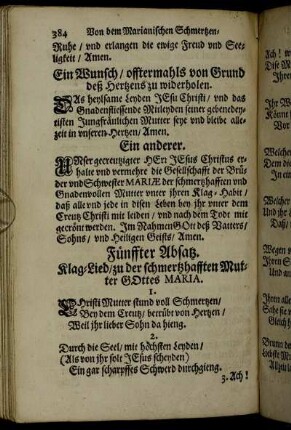 384 Von dem Marianischen Schmertzen-
Ruhe / vnd erlangen die ewige Frewd vnd See-
ligkeit / Amen.
Ein Wunsch / offtermahls von Grund
deß Hertzens zu widerholen.
DAs heylsame Leyden JEsu Christi / vnd das
Gnadenfliessende Mitleyden seiner gebenedey-
tisten Jungfräulichen Mutter seye vnd bleibe alle-
zeit in vnseren Hertzen / Amen.
Ein anderer.
UNser gecreutzigter HErr JEsus Christus er-
halte vnd vermehre die Gesellschafft der Brü-
der vnd Schwester MARIÆ der schmertzhafften vnd
Gnadenvollen Mutter vnter ihren Klag-Habit /
daß alle vnd jede in disen Leben bey ihr vnter dem
Creutz Christi mit leiden / vnd nach dem Todt mit
gecrönt werden. Im Rahmen GOtt deß Vatters /
Sohns / vnd Heiligen Geists / Amen.
Fünffter Absatz.
Klag-Lied / zu der schmertzhafften Mut-
ter GOttes MARIA.
1.
CHristi Mutter stund voll Schmertzen /
Bey dem Creutz / betrübt von Hertzen /
Weil ihr lieber Sohn da hieng.
2.
Durch die Seel / mit höchsten Leyden /
(Als von ihr solt JEsus scheyden)
Ein gar scharpffes Schwerd durchgieng.
3. Ach!